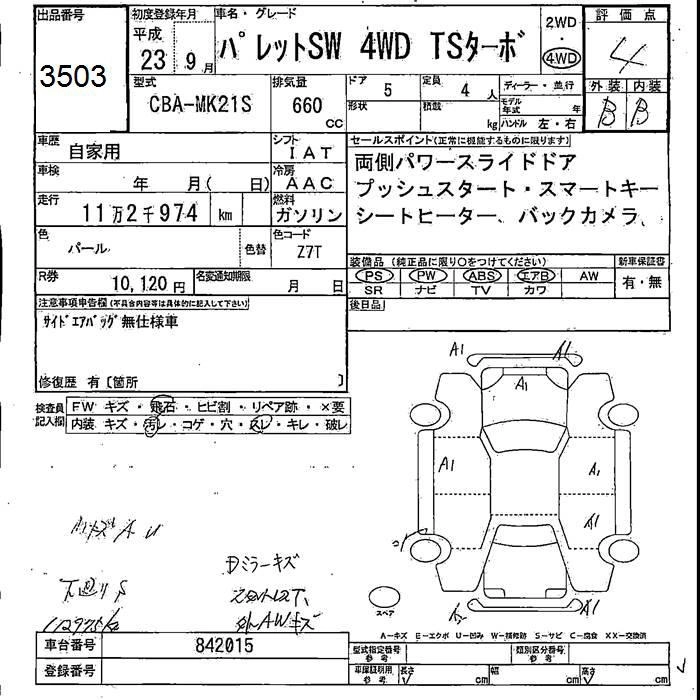 出品番号
3503
初度登録年月
平成
23年 9月
車名・グレード
パレットSW 4WD TSターボ
2WD
・
4WD
評価点
4
外装 内装
B B
型式
CBA-MK21S
排気量
660
cc
ドア 5
形状
定員 4 人
積載 kg
ディーラー・並行
モデル年式 年
ハンドル 左・右
車歴
自家用
シフト
IAT
車検
年 月( 日)
冷房
AAC
走行
11万2千974 km
燃料
ガソリン
色
パール
色替
色コード
Z7T
R券
10,120円
名変通知期限
月 日
セールスポイント(正常に機能するものに限ります)
両側パワースライドドア
プッシュスタート・スマートキー
シートヒーター、バックカメラ、
装備品(純正品に限り○をつけてください)
PS PW ABS エアB AW
SR ナビ TV カワ
新車保証書
有・無
後日品
注意事項申告欄(不具合内容等は具体的に記入して下さい)
サイドエアバッグ無仕様車
修復歴 有〔箇所 〕
検査員記入欄
FW キズ・飛石・ヒビ割・リペア跡・×要
内装 キズ・汚レ・コゲ・穴・スレ・キレ・破レ
A1 A1
A1
A1 A1
A1
小キズA U
下廻りS
Dミラーキズ
外AWキズ
スペア
A-キズ E-エクボ U-凹み W-補修跡 S-サビ C-腐食 XX-交換済
車台番号 842015
登録番号
型式指定番号
参考
類別区分番号
参考
車庫証明用
参考
長さ cm 幅 cm 高さ cm